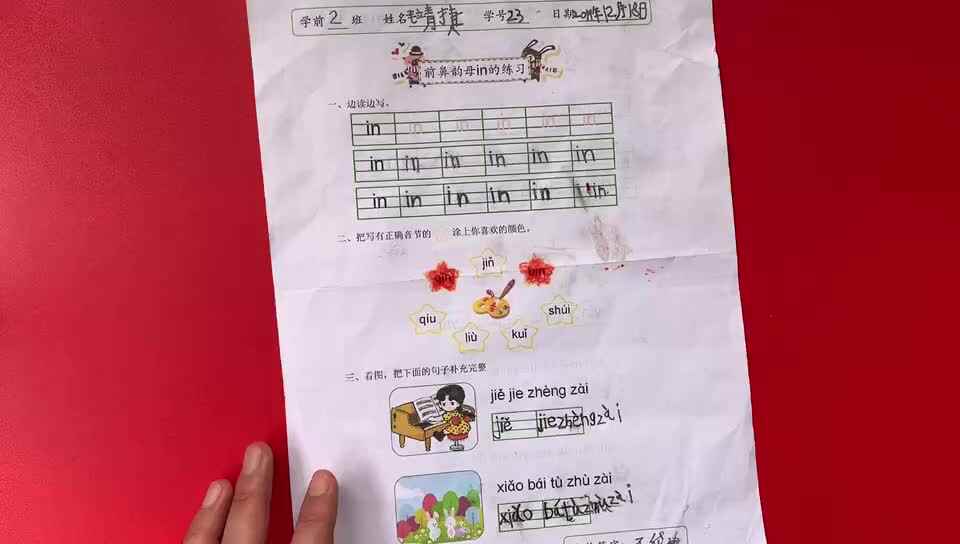 学前 2 班 姓名 学号 23 日期 2019年12月18日
前鼻韵母in的练习
一、边读边写。
in in in in in in
in in in in in in
in in in in in in
二、把写有正确音节的 涂上你喜欢的颜色。
jiň
qiu shúi
liù kuǐ
三、看图，把下面的句子补充完整
jiě jie zhèng zài
jiě jiezhèngzài
xiǎo bái tù zhù zài
xiǎo báitùzhùzài